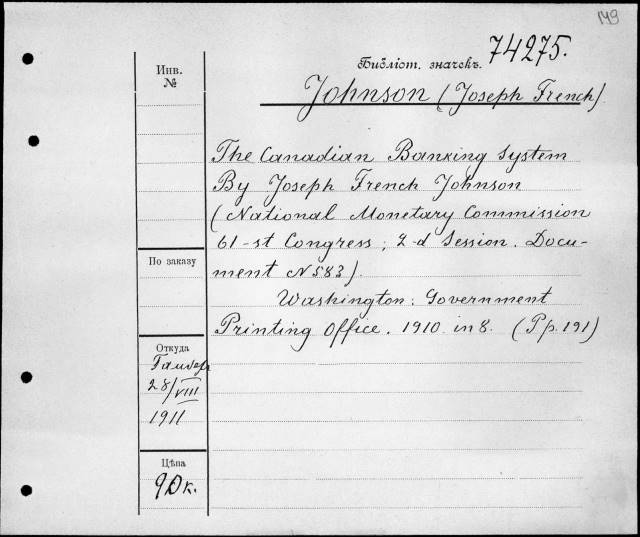 149
Библіот. значекъ. 74275.
Johnson (Joseph French).
Инв.
№
The Canadian Banking System
By Joseph French Johnson
(National Monetary Commission
61-st Congress; 2-d Session. Docu-
ment N 583).
По заказу
Washington: Government
Printing Office. 1910. in 8. (Pp. 191)
Откуда
28/VIII
1911
Цѣна
90 к.